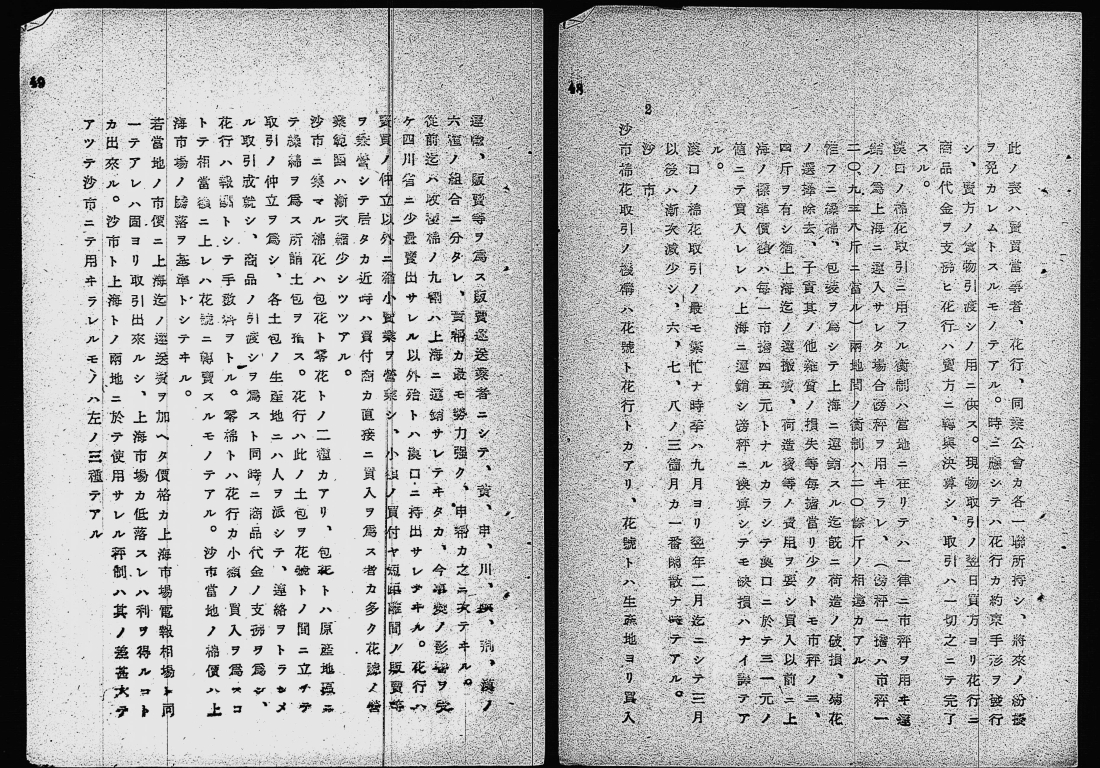 48
此ノ表ハ賣買當事者、花行、同業公會カ各一聯所持シ、將來ノ紛擾
ヲ免カレムトスルモノテアル。時ニ應シテハ花行カ約束手形ヲ發行
シ、賣方ノ貨物引渡シノ用ニ供ス。現物取引ノ翌日買方ヨリ花行ニ
商品代金ヲ支拂ヒ花行ハ賣方ニ轉與決算シ、取引ハ一切之ニテ完了
スル。
漢口ノ棉花取引ニ用フル衡制ハ當地ニ在リテハ一律ニ市秤ヲ用キ運
銷ノ爲上海ニ運入サレタ場合磅秤ヲ用キラレ、(磅秤一擔ハ市秤一
二〇、九三八斤ニ當ル)兩地間ノ衡制ハ二〇餘斤ノ相違カアル
惟フニ繰棉、包裝ヲ爲シテ上海ニ運銷スル迄既ニ荷造ノ破損、棉花
ノ選擇除去、子實其ノ他雜質ノ損失等每擔當リ少クトモ市秤ノ三、
四斤ヲ有シ猶上海迄ノ運搬費、荷造費等ノ費用ヲ要シ買入以前ニ上
海ノ標準價額ハ每一市擔四五元トナルカラシテ漢口ニ於テ三一元ノ
値ニテ買入レレハ上海ニ運銷シ磅秤ニ換算シテモ缺損ハナイ譯テア
ル。
漢口ノ棉花取引ノ最モ繁忙ナ時季ハ九月ヨリ翌年二月迄ニシテ三月
以後ハ漸次減少シ、六、七、八ノ三箇月カ一番閑散ナ時テアル。
2
沙市
沙市棉花取引ノ機構ハ花號ト花行トカアリ、花號トハ生產地ヨリ買入
49
運搬、販賣等ヲ爲ス販賣運送業者ニシテ、黃、申、川、 、漢ノ
六種ノ組合ニ分タレ、 カ最モ勢力強ク、申幇カ之ニ次テキル。
從前迄ハ收穫棉ノ九割ハ上海ニ運銷サレテキタカ、今事變ノ影響ヲ受
ケ四川省ニ少量賣出サレル以外殆トハ漢口ニ持出サレテキル。花行ハ
賣買ノ仲立以外ニ猶小賣業ヲ營業シ、小額ノ買付ヤ短距離間ノ販賣等
ヲ兼營シテ居タカ近時ハ買付商カ直接ニ買入ヲ爲ス者カ多ク花號ノ營
業範圍ハ漸次縮少シツツアル。
沙市ニ集マル棉花ハ包花ト零花トノ二種カアリ、包花トハ原產地區ニ
テ繰綿ヲ爲ス所謂土包ヲ指ス。花行ハ此ノ土包ヲ花號トノ間ニ立チテ
取引ノ仲立ヲ爲シ、各土包ノ生產地ニハ人ヲ派シテ、連絡ヲトラシメ
ル取引成就シ、商品ノ引渡シヲ爲スト同時ニ商品代金ノ支拂ヲ爲シ、
花行ハ報酬トシテ手數料ヲトル。零綿トハ花行カ小額ノ買入ヲ爲スコ
トテ相當額ニ上レハ花號ニ轉賣スルモノテアル。沙市當地ノ棉價ハ上
海市場ノ騰落ヲ基準トシテキル。
若當地ノ市價ニ上海迄ノ運送費ヲ加ヘタ價格カ上海市場電報相場ト同
一テアレハ固ヨリ取引出來ルシ、上海市場カ低落スレハ利ヲ得ルコト
カ出來ル。沙市ト上海トノ兩地ニ於テ使用サレル秤制ハ其ノ差甚大テ
アツテ沙市ニテ用キラレルモノハ左ノ三種テアル